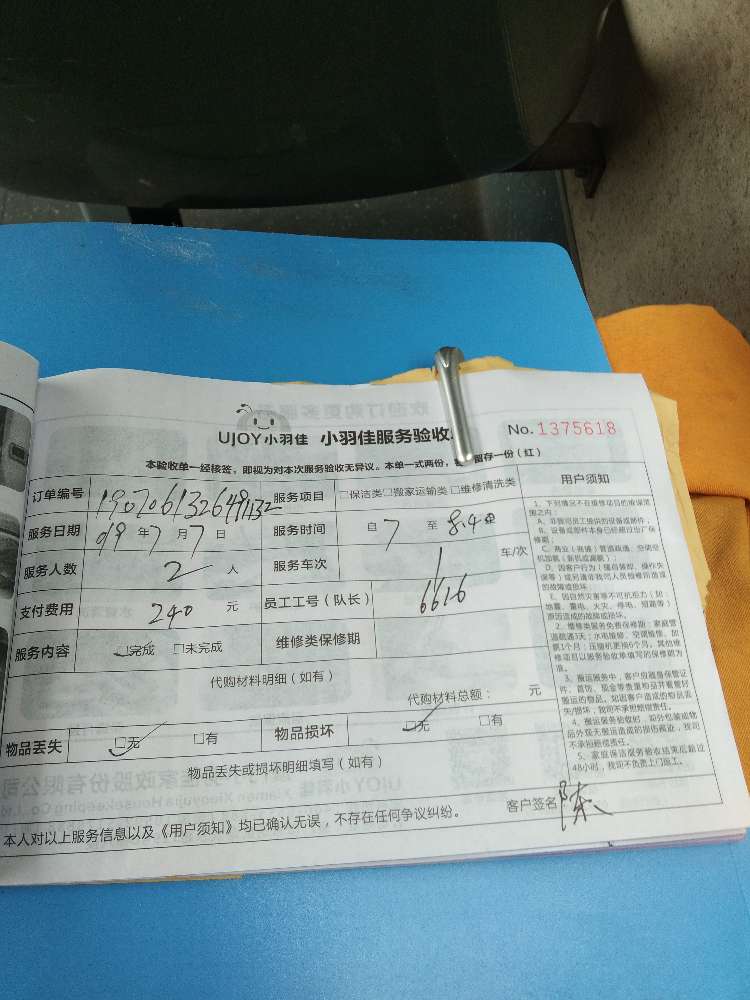 UJOY小羽佳 小羽佳服务验收 No.1375618
本验收单一经核签，即视为对本次服务验收无异议。本单一式两份，留存一份（红）
订单编号 服务项目 □保洁类□搬家运输类 □维修清洗类
服务日期 019年7月7日 服务时间 自7至8:40
服务人数 2人 服务车次 1车/次
支付费用 240元 员工工号（队长） 6616
服务内容 □完成 □未完成 维修类保修期
代购材料明细（如有）
代购材料总额： 元
物品丢失 □无 □有 物品损坏 □无 □有
物品丢失或损坏明细填写（如有）
本人对以上服务信息以及《用户须知》均已确认无误，不存在任何争议纠纷。 客户签名 陈
用户须知
1、下列情况不在维修项目的被保范围之内：
A、非我司员工提供的设备或部件；
B、设备或部件本身已经超过出厂保修期；
C、商业（商铺）管道疏通、空调空机加氟（新机或漏氟）；
D、因客户行为（擅自装卸、操作失误等）或另请非我司人员维修而造成的故障或损坏；
E、如自然灾害等不可抗拒力（如：地震、雷电、火灾、停电、短路等）原因造成的故障或损坏。
2、维修类服务免费保修期：家庭管道疏通3天；水电维修、空调维修、加氟1个月；压缩机更换6个月。其他维修项目以服务验收单填写的保修期为准。
3、搬运服务中，客户应随身保管证件、首饰、现金等贵重物品并看管好搬运的物品。如因客户造成的物品丢失/损坏，我司不承担赔偿责任。
4、搬运服务验收时，如外包装或物品外观无搬运造成的损伤痕迹，我司不承担赔偿责任。
5、家庭保洁服务验收结束后超过48小时，我司不负责上门返工。